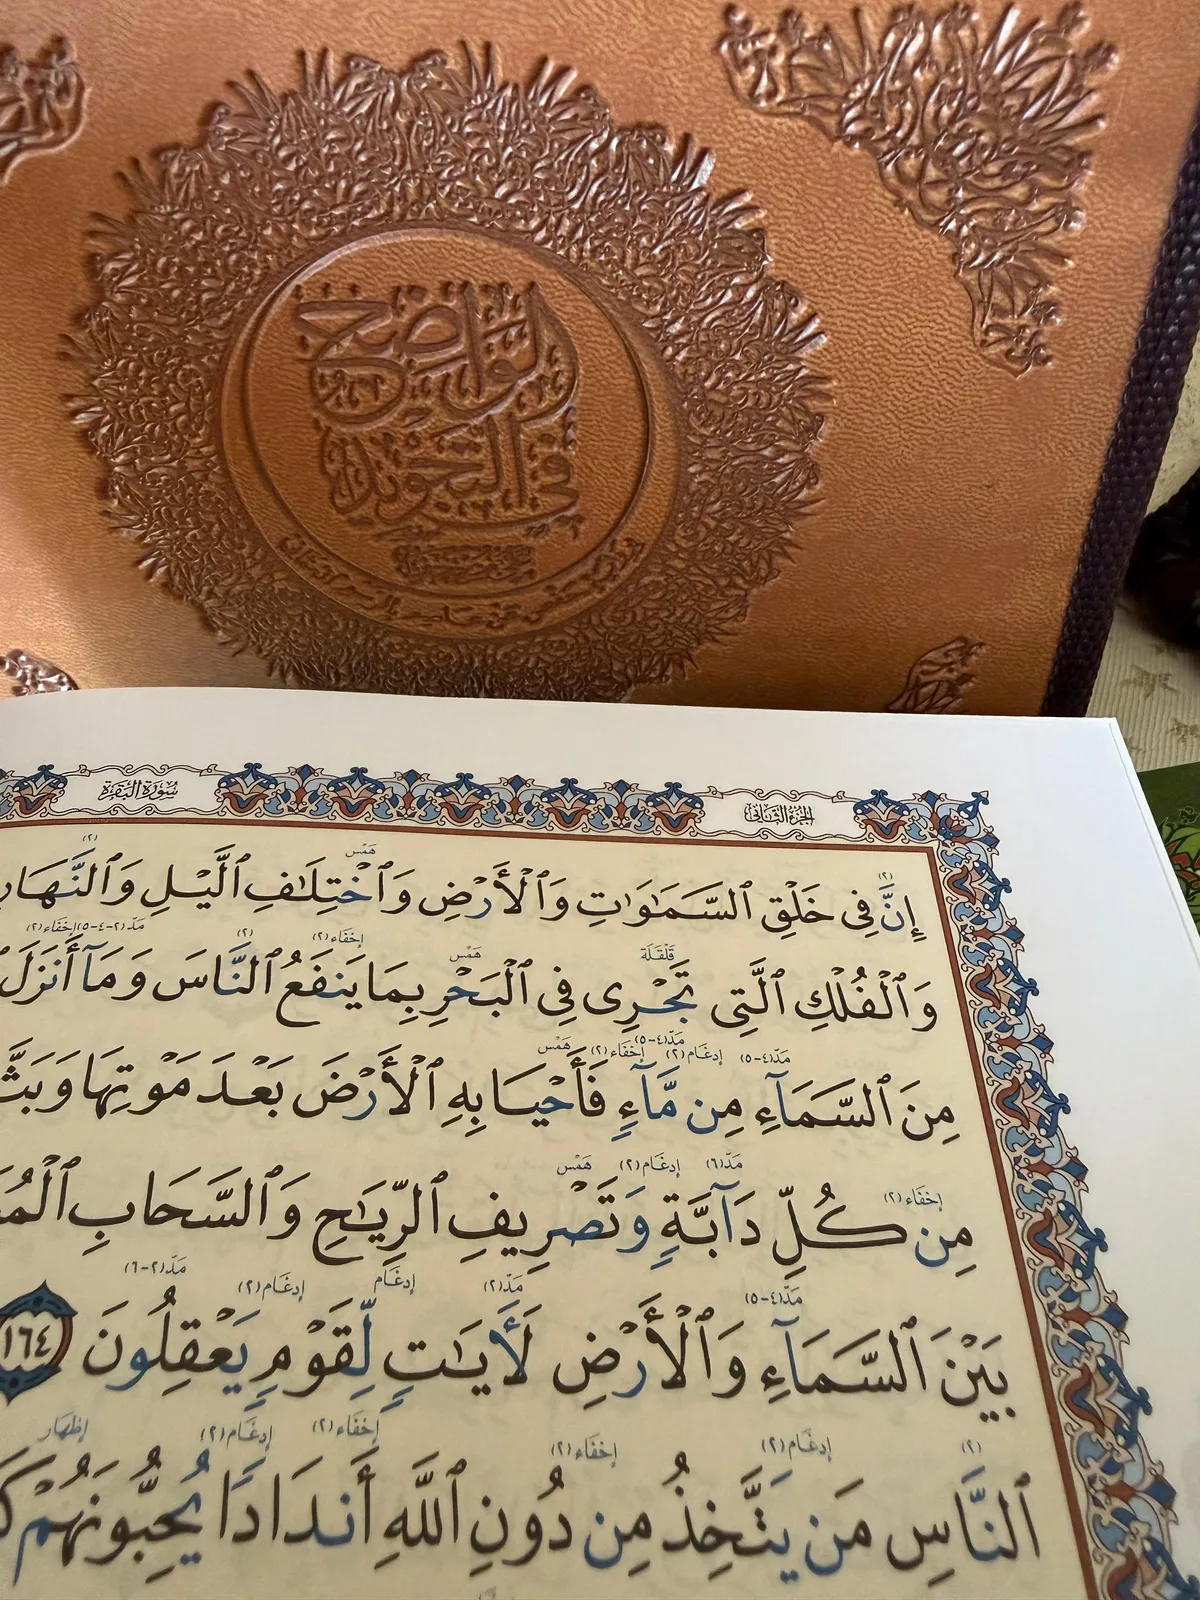 الواضح
في التجويد
سورة البقرة
الجزء الثاني
(٢) همس (٢)
إِنَّ فِى خَلْقِ ٱلسَّمَٰوَٰتِ وَٱلْأَرْضِ وَٱخْتِلَٰفِ ٱلَّيْلِ وَٱلنَّهَارِ
قلقلة همس إخفاء(٢) (٢) مدّ(٢-٤-٥) إخفاء(٢)
وَٱلْفُلْكِ ٱلَّتِى تَجْرِى فِى ٱلْبَحْرِ بِمَا يَنفَعُ ٱلنَّاسَ وَمَآ أَنزَلَ
مدّ(٤-٥) إدغام(٢) مدّ(٤-٥) إخفاء(٢) همس
مِنَ ٱلسَّمَآءِ مِن مَّآءٍ فَأَحْيَا بِهِ ٱلْأَرْضَ بَعْدَ مَوْتِهَا وَبَثَّ
إخفاء(٢) مدّ(٦) إدغام(٢) همس
مِن كُلِّ دَآبَّةٍ وَتَصْرِيفِ ٱلرِّيَٰحِ وَٱلسَّحَابِ
مدّ(٤-٥) مدّ(٢) إدغام إدغام(٢) مدّ(٢-٦)
بَيْنَ ٱلسَّمَآءِ وَٱلْأَرْضِ لَأَيَٰتٍ لِّقَوْمٍ يَعْقِلُونَ ١٦٤
(٢) إدغام(٢) إخفاء(٢) إخفاء(٢) إدغام(٢) إظهار
ٱلنَّاسِ مَن يَتَّخِذُ مِن دُونِ ٱللَّهِ أَندَادًا يُحِبُّونَهُمْ